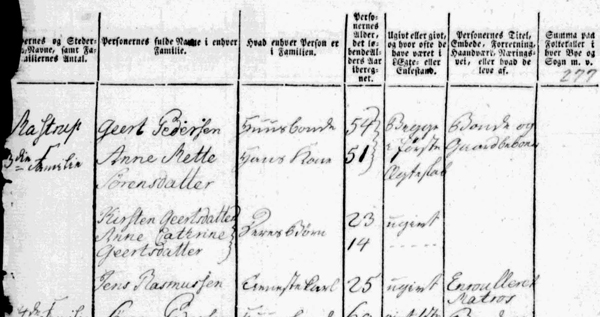 ernes og Steder- Navne, samt Fa- miliernes Antal.
Personernes fulde Navne i enhver Familie.
Hvad enhver Person er i Familien.
Perso- nernes Alder, det lø- bende Al- ders Aar iberegnet.
Ugivt eller givt, og hvor ofte de have været i Egte- eller Enkestand.
Personernes Titel, Embede, Forretning, Haandværk, Nærings- vei, eller hvad de leve af.
Summa paa Folketallet i hver Bye og Sogn m. v.
277
Rastrup Geert Pedersen Huusbonde 54 Begge Bonde og
3die Familie Anne Mette Hans Kone 51 Første Gaardbeboer
Sørensdatter Ægteskab
Kirsten Geertsdatter 23 ugivt
Anne Cathrine Deres Børn
Geertsdatter 14 -----
Jens Rasmussen Tienistekarl 25 ugivt Enroulleret
Matros